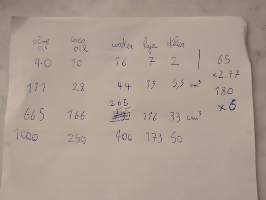 olive oil coco oil water lye other
40 10 16 7 2 | 65
x2.77
111 28 44 19 5,5 cm³ 180
265 x6
665 166 116 33 cm³
1000 250 400 173 50